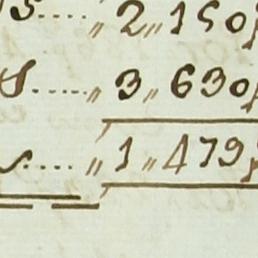 S.... ,, 2,, 150
S..... ,, 3,, 630
s.... ,, 1,, 479